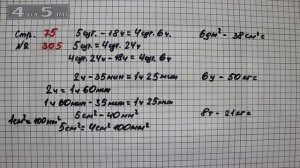 4.5.0.
Стр. 75
№ 305
5сут. - 18ч = 4сут. 6ч.
5сут = 4сут. 24ч
4сут. 24ч - 18ч = 4сут. 6ч
2ч - 35мин = 1ч 25мин
2ч = 1ч 60мин
1ч 60мин - 35мин = 1ч 25мин
1см² = 100мм²
5см² - 40мм²
5см² = 4см² 100мм²
6дм² - 38см² =
6ц - 50кг =
8т - 21кг =